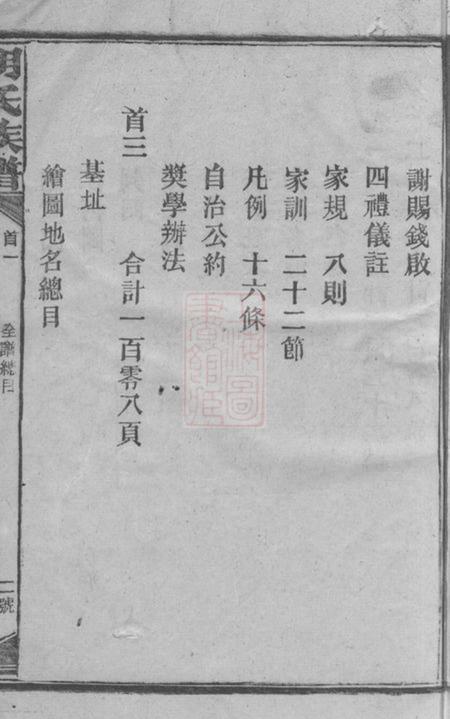 謝賜錢啟
四禮儀註
家規 八則
家訓 二十二節
凡例 十六條
自治公約
獎學辦法
首三 合計一百零八頁
基址
繪圖地名總目
胡氏族譜 首一 全譜總目 二號